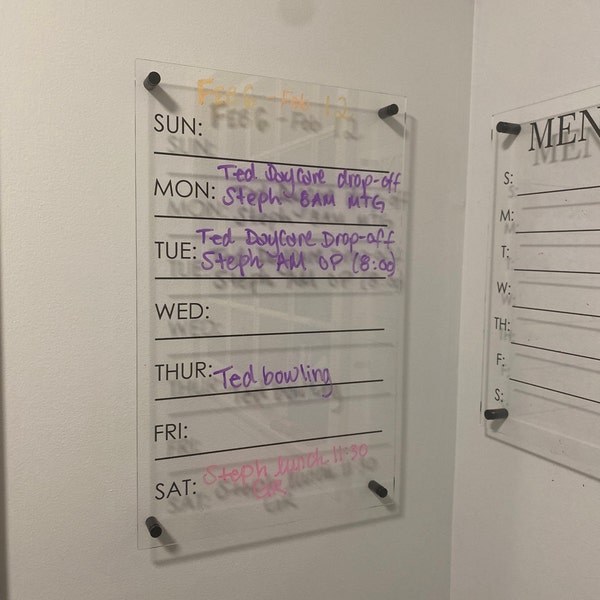 Feb 6 - Feb 12
SUN:
MON: Ted Daycare drop-off
Steph - 8AM MTG
TUE: Ted Daycare Drop-off
Steph AM OP (8:00)
WED:
THUR: Ted bowling
FRI:
SAT: Steph lunch 11:30
MEN
S:
M:
T:
W:
TH:
F:
S: